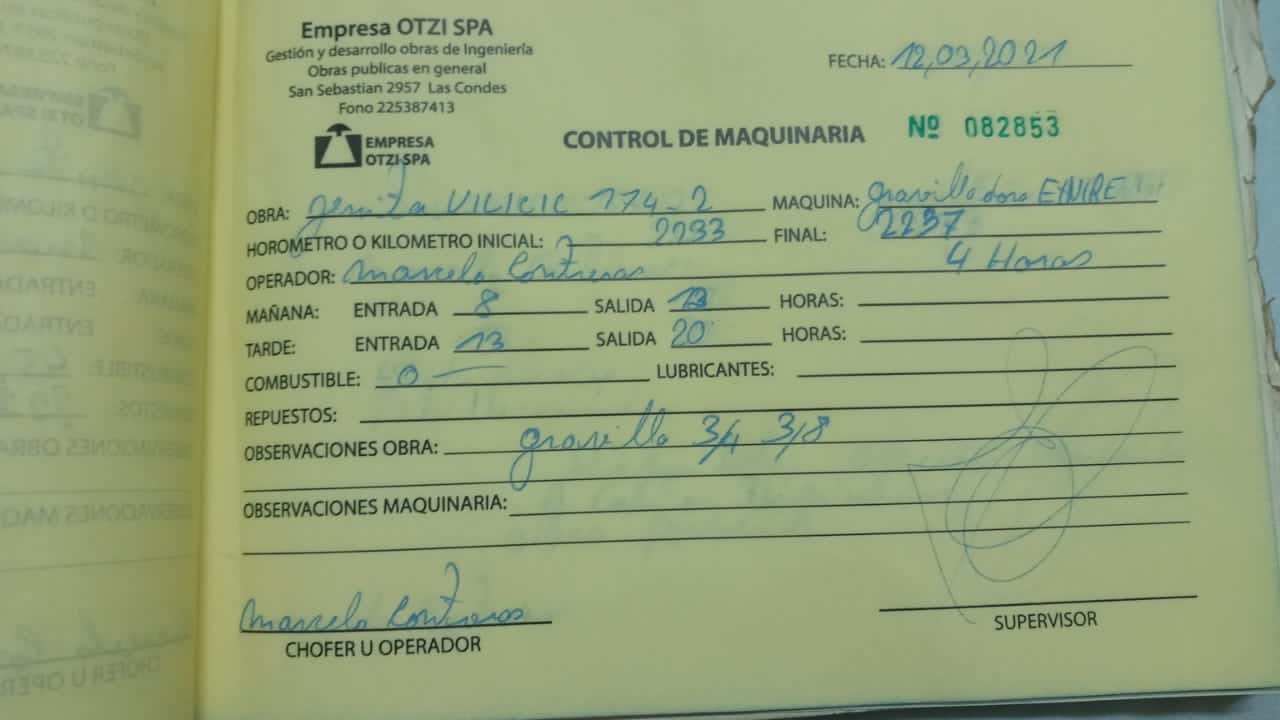 Empresa OTZI SPA
Gestión y desarrollo obras de Ingeniería
Obras publicas en general
San Sebastian 2957 Las Condes
Fono 225387413
FECHA: 12,03,2021
EMPRESA
OTZI SPA
CONTROL DE MAQUINARIA Nº 082853
OBRA: VILICIC 174-2 MAQUINA: gravilladora
HOROMETRO O KILOMETRO INICIAL: 2233 FINAL: 2237
OPERADOR: Marcelo Contreras 4 Horas
MAÑANA: ENTRADA 8 SALIDA HORAS:
TARDE: ENTRADA 13 SALIDA 20 HORAS:
COMBUSTIBLE: 0 LUBRICANTES:
REPUESTOS:
OBSERVACIONES OBRA: gravilla 3/4 3/8
OBSERVACIONES MAQUINARIA:
Marcelo Contreras
CHOFER U OPERADOR
SUPERVISOR